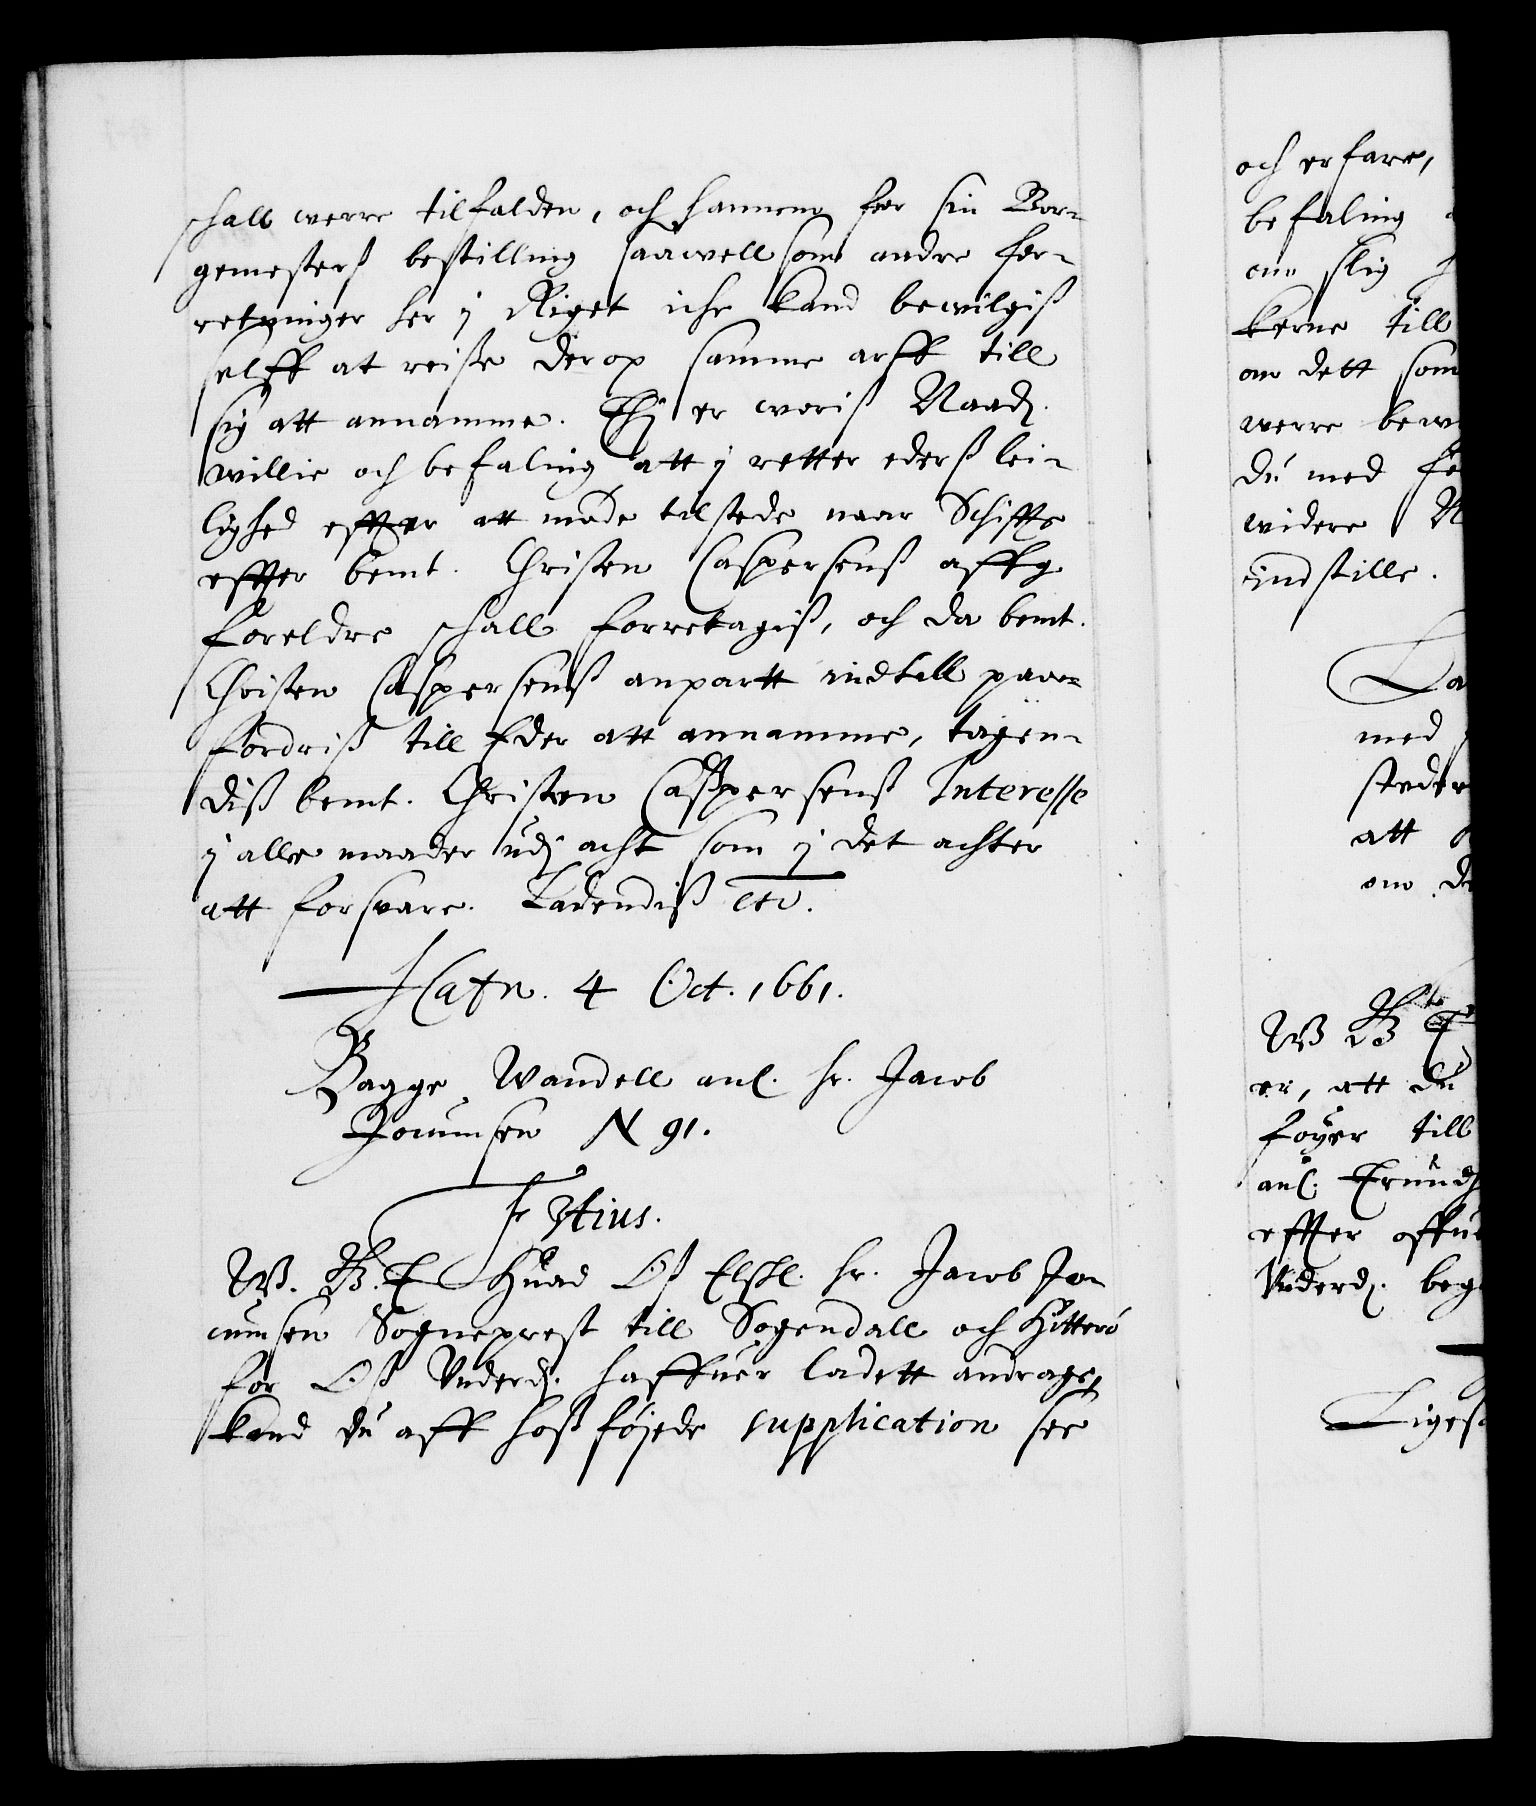 schall werre tilfalden, och hannem for sin Bor-
gemesterß bestilling saawell som andre for-
retninger her j Riget iche kand bewilgiß
selff at reiße derop samme arff till
sig att annamme. Thj er woriß Naad.
willie och befaling att j retter ederß lei-
lighed effter att møde tilstede naar Schiffte
effter bemt. Christen Caspersenß affg.
foreldre schall forretagiß, och da bemt.
Christen Caspersenß anpartt indtill paa-
fordriß till Eder att annamme, tagen-
diß bemt. Christen Caßpersenß Interesse
j alle maader udj acht som j det achter
att forsvare. Ladendiß etc.
Hafn. 4 Oct. 1661.
Bagge Wandell anl. hr. Jacob
Jocumsen N 91.
Fr 3tius.
W. G. T. Huad Oß Elschl. hr. Jacob Jo-
cumsen Sogneprest till Sogendall och Hitterö
for Oß Underd. haffuer ladett andrage,
kand du aff hoßføjede supplication see
och erfare,
befaling
om slig
kerne till
om dett som
werre bew
du med
widere
indstille.
La
med
steder
att
om de
W G T
er, att du
føyer till
anl.
effter
Underd. beg
Ligesa